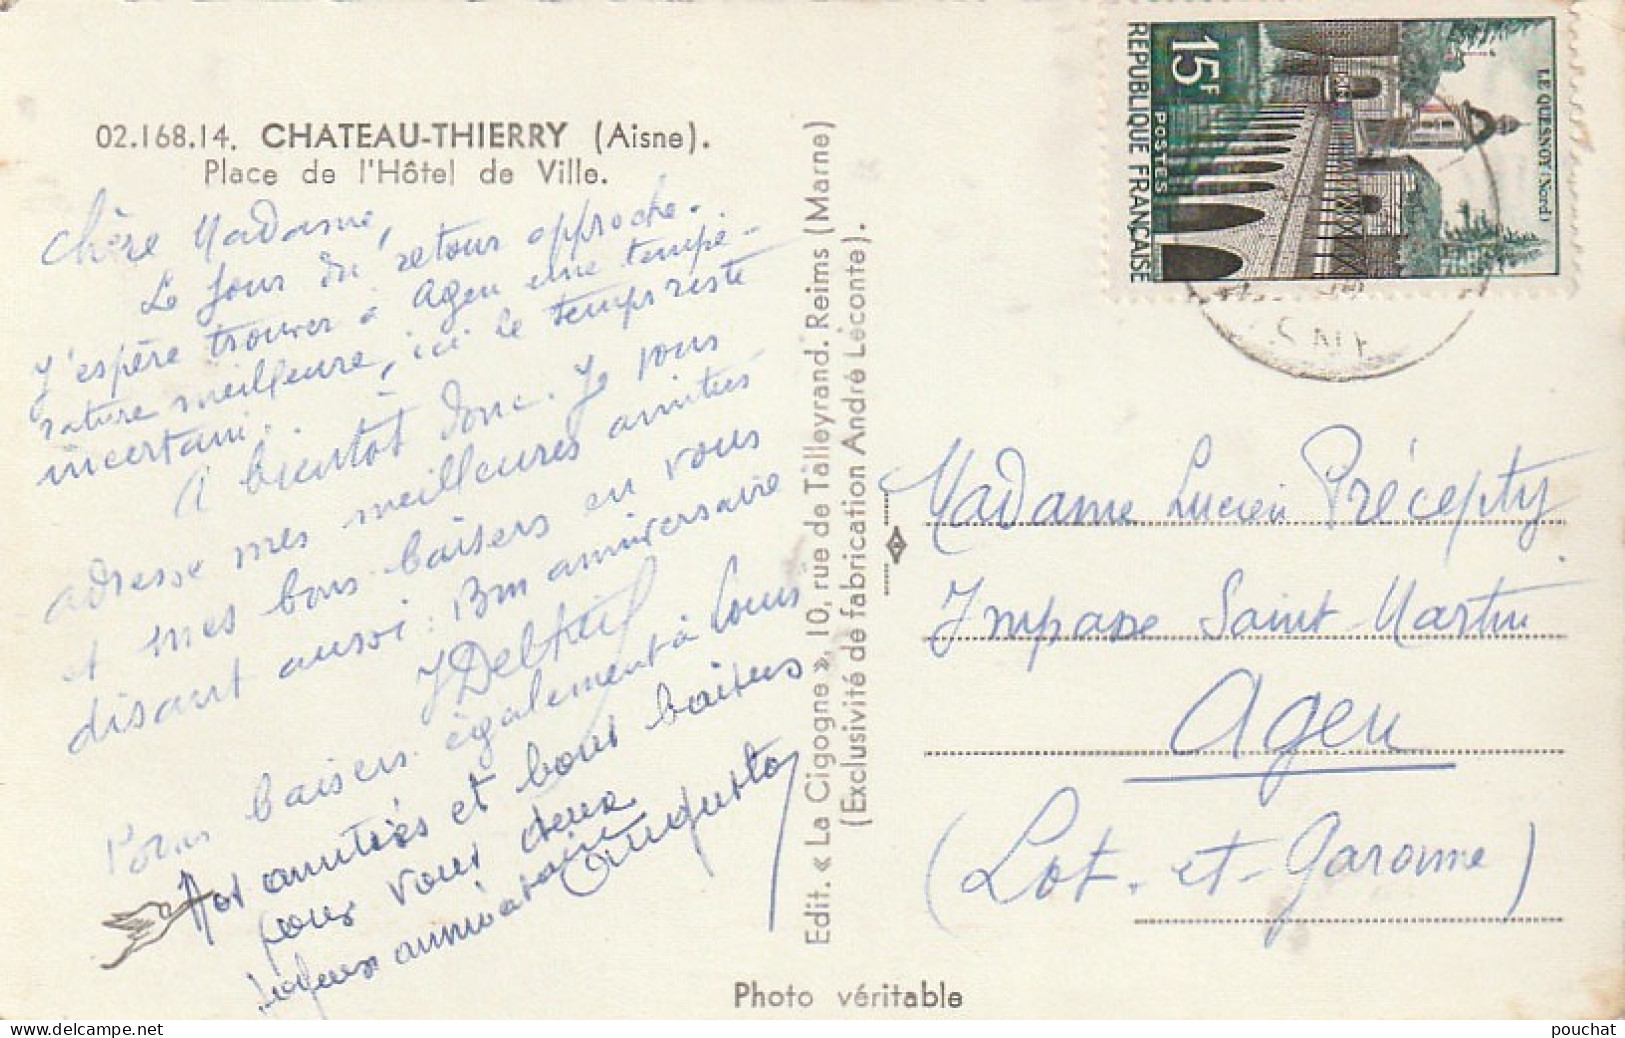 02.168.14. CHATEAU-THIERRY (Aisne).
Place de l'Hôtel de Ville.
Chère Madame,
Le jour du retour approche.
J'espère trouver à Agen une tempé-
rature meilleure, ici le temps reste
incertain.
A bientôt donc. Je vous
adresse mes meilleures amitiés
et mes bons baisers en vous
disant aussi : Bon anniversaire
baisers également à Louis
Nos amitiés et bons baisers
pour vous deux
joyeux anniversaire
Edit. « La Cigogne », 10, rue de Talleyrand. Reims (Marne)
(Exclusivité de fabrication André Leconte).
Photo véritable
15F
POSTES
REPUBLIQUE FRANÇAISE
LE QUESNOY (Nord)
Madame Lucien Précepty
Impasse Saint-Martin
Agen
(Lot-et-Garonne)
pouchat